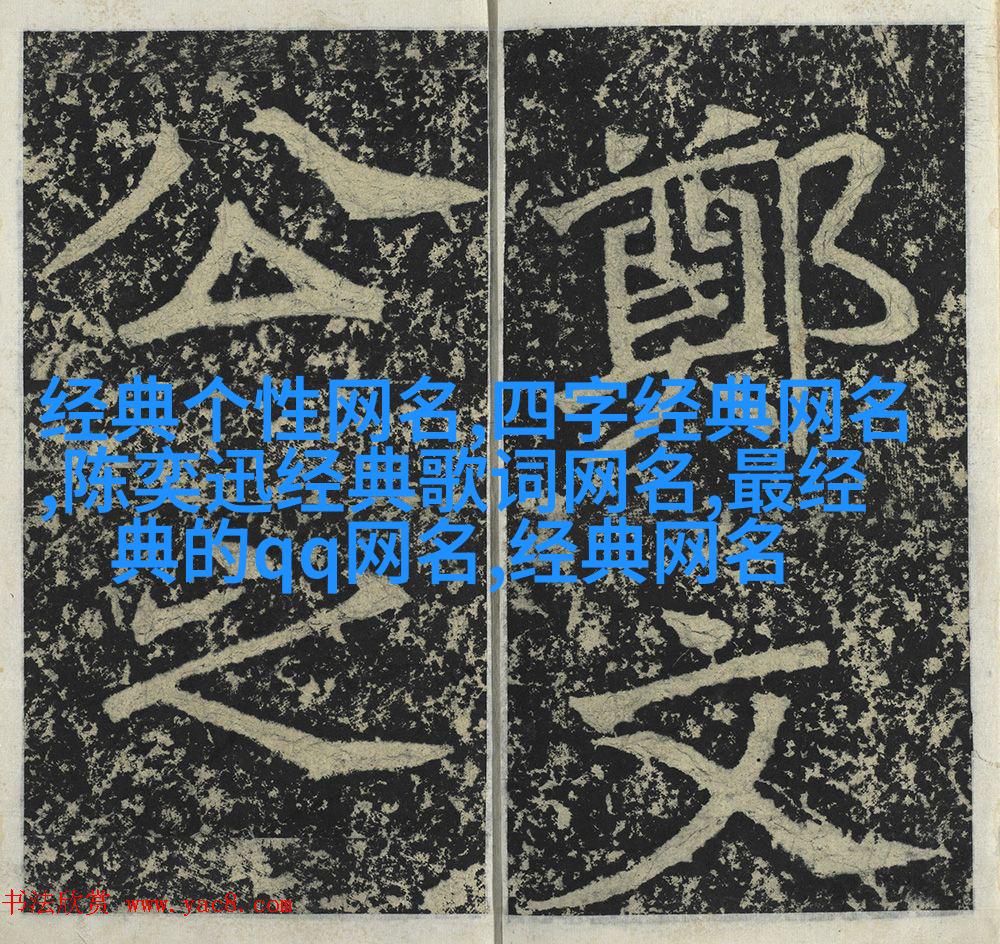 鄭文
公之
经典个性网名,四字经典网名
,陈奕迅经典歌词网名,最经
典的qq网名,经典网名
书法欣赏 www.yac8.com